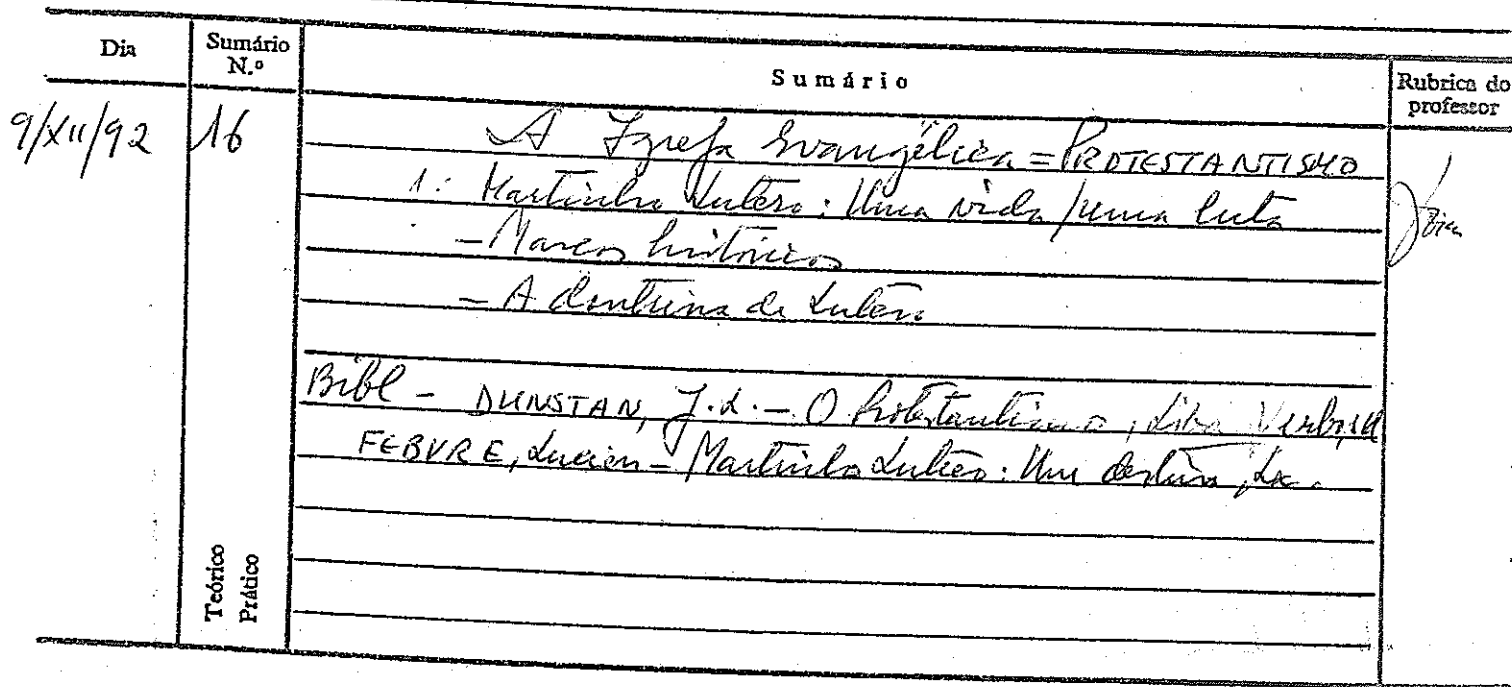 Dia
Sumário N.º
Sumário
Rubrica do professor
9/XII/92
16
A Igreja Evangélica = PROTESTANTISMO
1: Martinho Lutero: Uma vida / uma luta
- Marcos históricos
- A doutrina de Lutero
Bibl - DUNSTAN, J. L. - O Protestantismo, Lisboa Verbo,
FEBVRE, Lucien - Martinho Lutero: Um destino, Lx.
Teórico
Prático